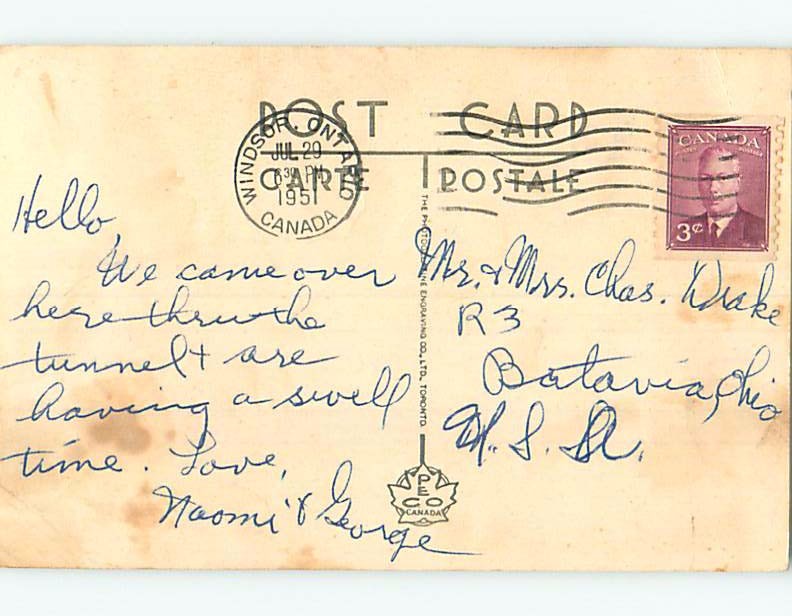 POST CARD
CARTE POSTALE
WINDSOR, ONTARIO
JUL 29
6 30 PM
1951
CANADA
CANADA
3¢
Hello,
We came over
here thru the
tunnel & are
having a swell
time. Love,
Naomi & George
THE PHOTOGELATINE ENGRAVING CO., LTD. TORONTO.
Mr. & Mrs. Chas. Drake
R 3
Batavia, Ohio
U. S. A.
PECO
CANADA